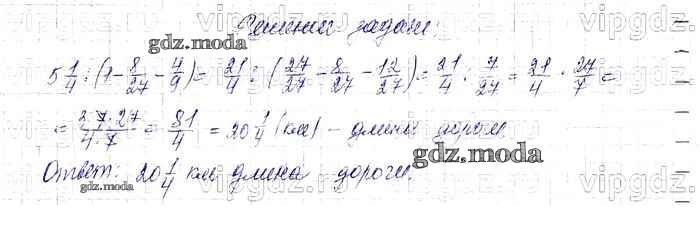 Решение задачи:
5 1/4 : (1 - 8/27 - 4/9) = 21/4 : (27/27 - 8/27 - 12/27) = 21/4 : 7/27 = 21/4 · 27/7 =
= 27·27/4·7 = 81/4 = 20 1/4 (км) - длина дороги.
Ответ: 20 1/4 км длина дороги.
gdz.moda
gdz.moda
vipgdz.ru